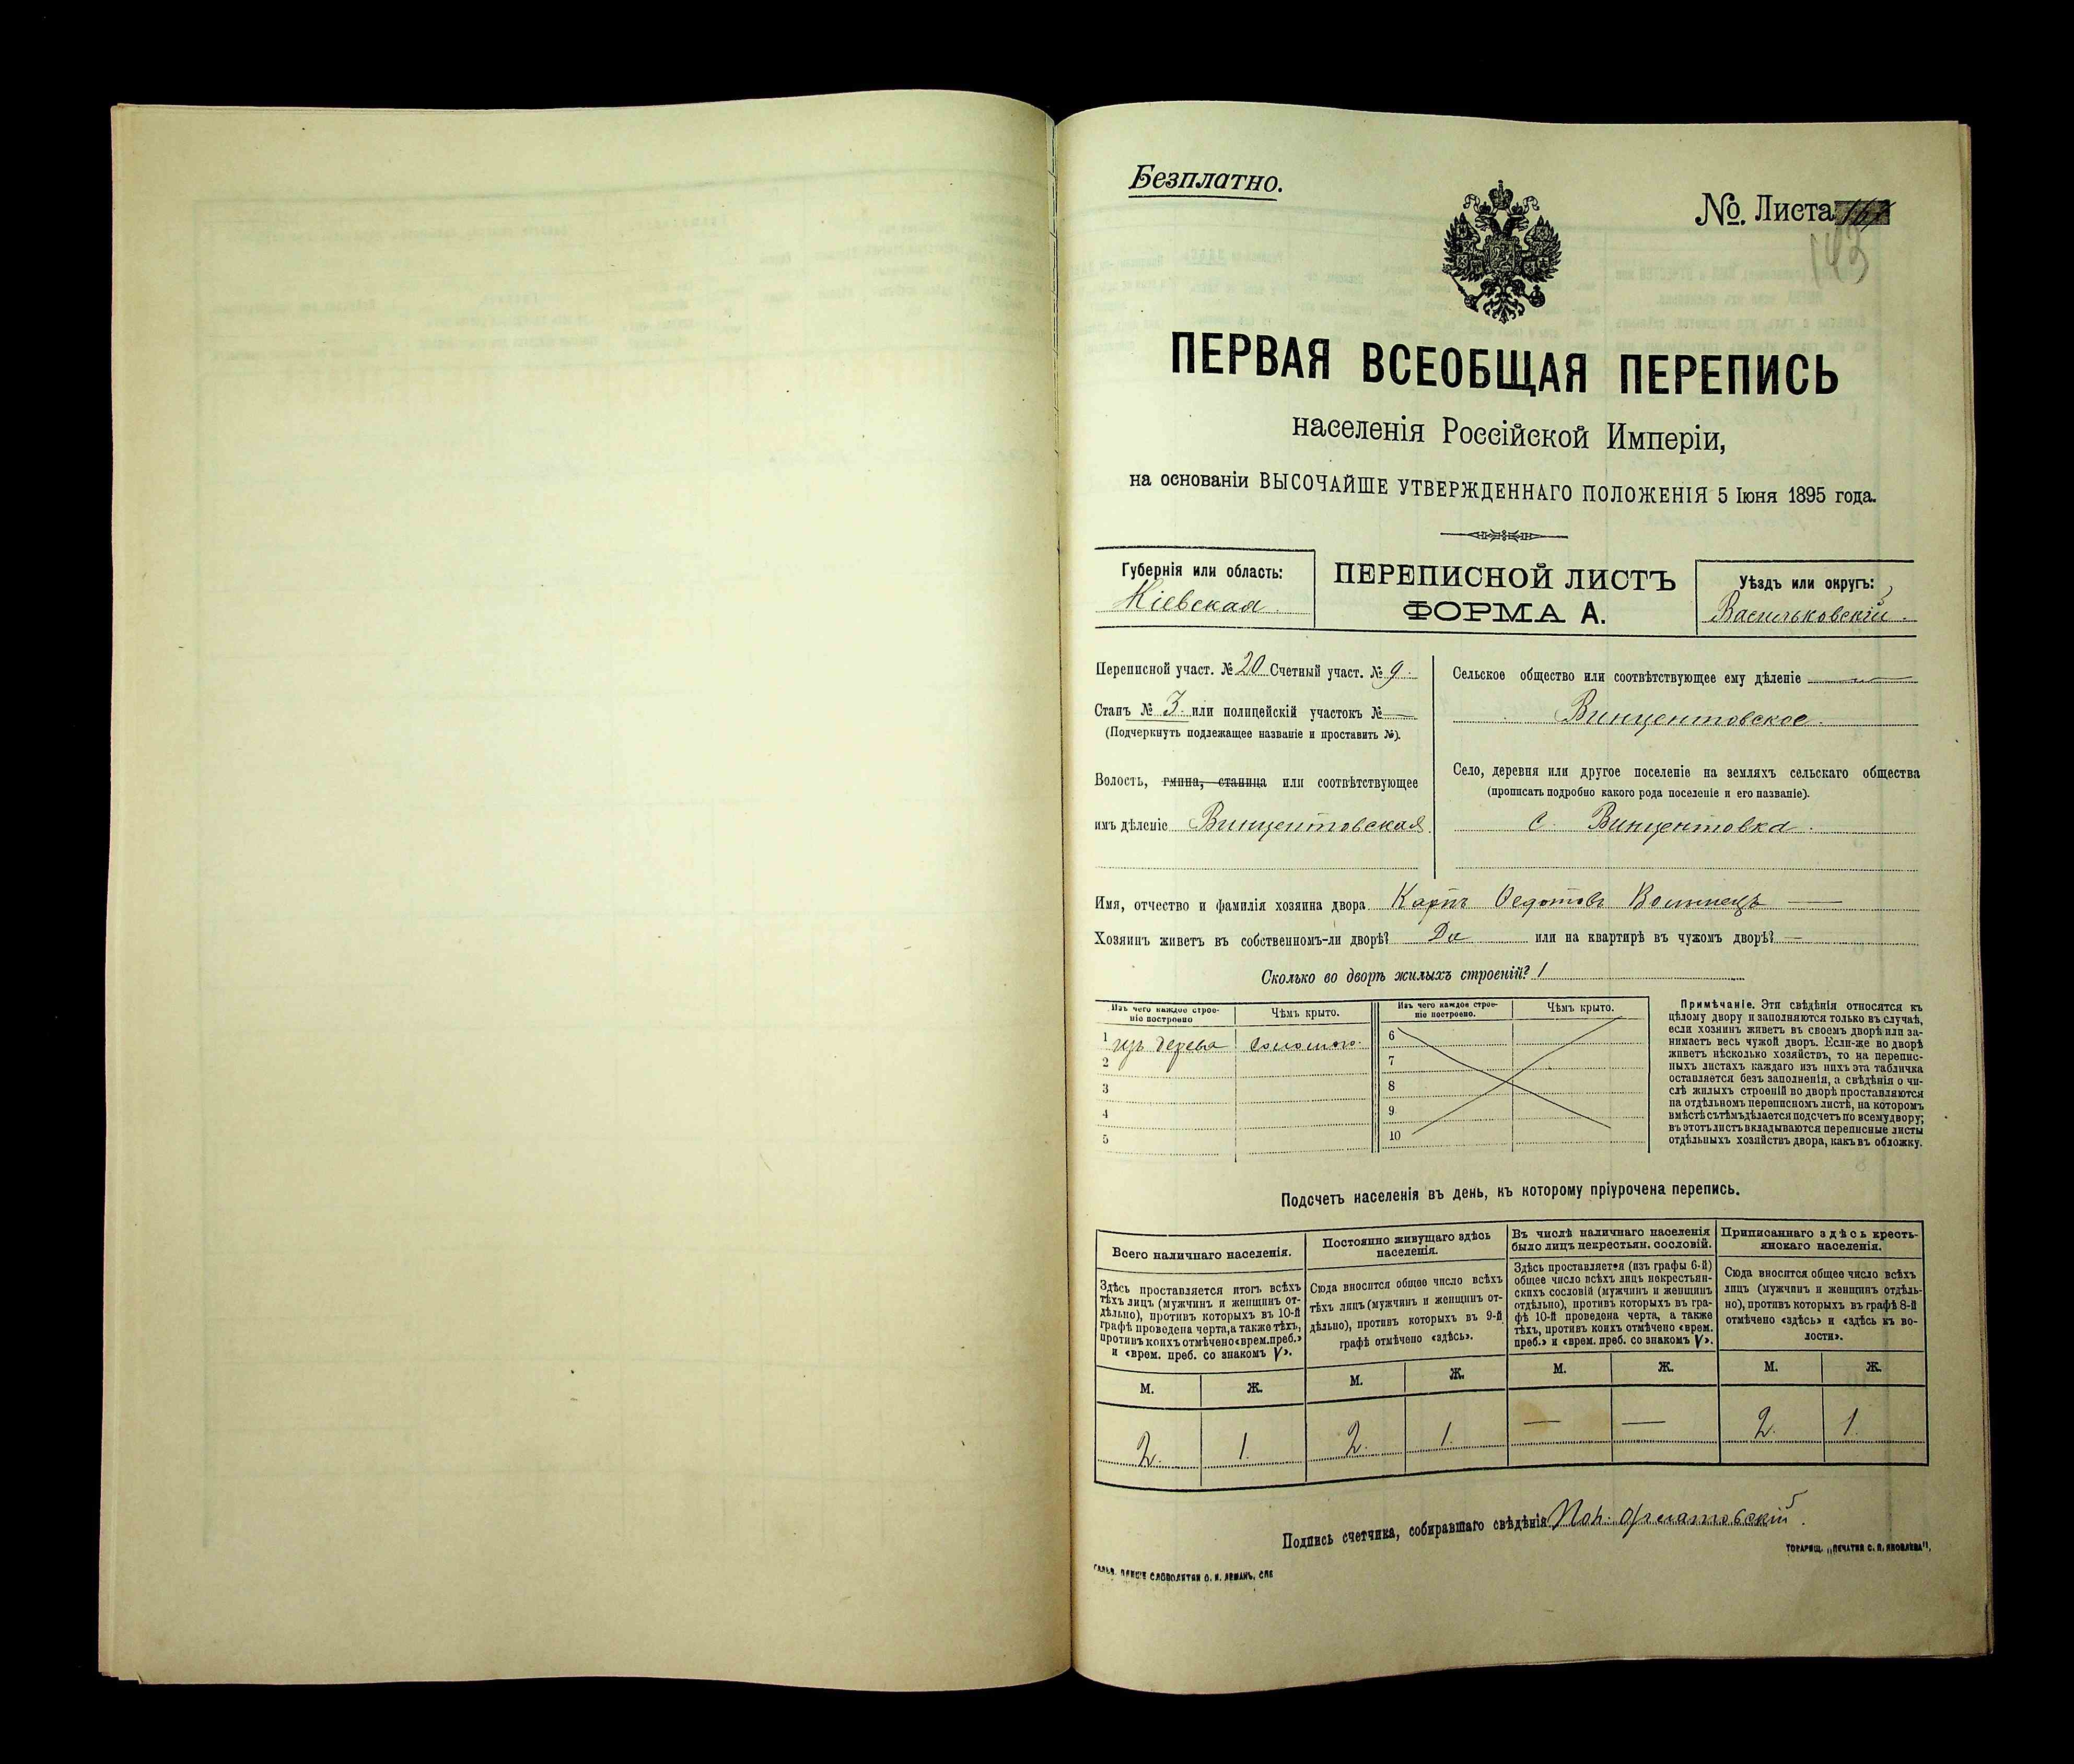 Безплатно.
№. Листа
143
ПЕРВАЯ ВСЕОБЩАЯ ПЕРЕПИСЬ
населенія Россійской Имперіи,
на основаніи ВЫСОЧАЙШЕ УТВЕРЖДЕННАГО ПОЛОЖЕНІЯ 5 Іюня 1895 года.
Губернія или область:
Кіевская
ПЕРЕПИСНОЙ ЛИСТЪ
ФОРМА А.
Уѣздъ или округъ:
Васильковскій
Переписной участ. № 20 Счетный участ. № 9.
Станъ № 3. или полицейскій участокъ № —
(Подчеркнуть подлежащее названіе и проставить №).
Волость, гмина, станица или соотвѣтствующее
имъ дѣленіе Винцентовская
Сельское общество или соотвѣтствующее ему дѣленіе
Винцентовское.
Село, деревня или другое поселеніе на земляхъ сельскаго общества
(прописать подробно какого рода поселеніе и его названіе).
с. Винцентовка.
Имя, отчество и фамилія хозяина двора Карпъ Ѳедотовъ Волынецъ —
Хозяинъ живетъ въ собственномъ-ли дворѣ? Да или на квартирѣ въ чужомъ дворѣ? —
Сколько во дворѣ жилыхъ строеній? 1
Изъ чего каждое строе-
ніе построено
Чѣмъ крыто.
1 изъ дерева соломою.
2
3
4
5
Изъ чего каждое строе-
ніе построено.
Чѣмъ крыто.
6
7
8
9
10
Примѣчаніе. Эти свѣдѣнія относятся къ
цѣлому двору и заполняются только въ случаѣ,
если хозяинъ живетъ въ своемъ дворѣ или за-
нимаетъ весь чужой дворъ. Если-же во дворѣ
живетъ нѣсколько хозяйствъ, то на перепис-
ныхъ листахъ каждаго изъ нихъ эта табличка
оставляется безъ заполненія, а свѣдѣнія о чи-
слѣ жилыхъ строеній во дворѣ проставляются
на отдѣльномъ переписномъ листѣ, на которомъ
вмѣстѣ съ тѣмъ дѣлается подсчетъ по всему двору;
въ этотъ листъ вкладываются переписные листы
отдѣльныхъ хозяйствъ двора, какъ въ обложку.
Подсчетъ населенія въ день, къ которому пріурочена перепись.
Всего наличнаго населенія.
Здѣсь проставляется итогъ всѣхъ
тѣхъ лицъ (мужчинъ и женщинъ от-
дѣльно), противъ которыхъ въ 10-й
графѣ проведена черта, а также тѣхъ,
противъ коихъ отмѣчено «врем. преб.»
и «врем. преб. со знакомъ V».
М. Ж.
2. 1.
Постоянно живущаго здѣсь
населенія.
Сюда вносится общее число всѣхъ
тѣхъ лицъ (мужчинъ и женщинъ от-
дѣльно), противъ которыхъ въ 9-й
графѣ отмѣчено «здѣсь».
М. Ж.
2. 1.
Въ числѣ наличнаго населенія
было лицъ некрестьян. сословій.
Здѣсь проставляется (изъ графы 6-й)
общее число всѣхъ лицъ некрестьян-
скихъ сословій (мужчинъ и женщинъ
отдѣльно), противъ которыхъ въ гра-
фѣ 10-й проведена черта, а также
тѣхъ, противъ коихъ отмѣчено «врем.
преб.» и «врем. преб. со знакомъ V».
М. Ж.
— —
Приписаннаго здѣсь кресть-
янскаго населенія.
Сюда вносится общее число всѣхъ
лицъ (мужчинъ и женщинъ отдѣль-
но), противъ которыхъ въ графѣ 8-й
отмѣчено «здѣсь» и «здѣсь къ во-
лости».
М. Ж.
2. 1.
Подпись счетчика, собиравшаго свѣдѣнія
СЛОВОЛИТНИ О. И. ЛЕМАНЪ, СПБ
ТОВАРИЩ. „ПЕЧАТНЯ С. П. ЯКОВЛЕВА“,